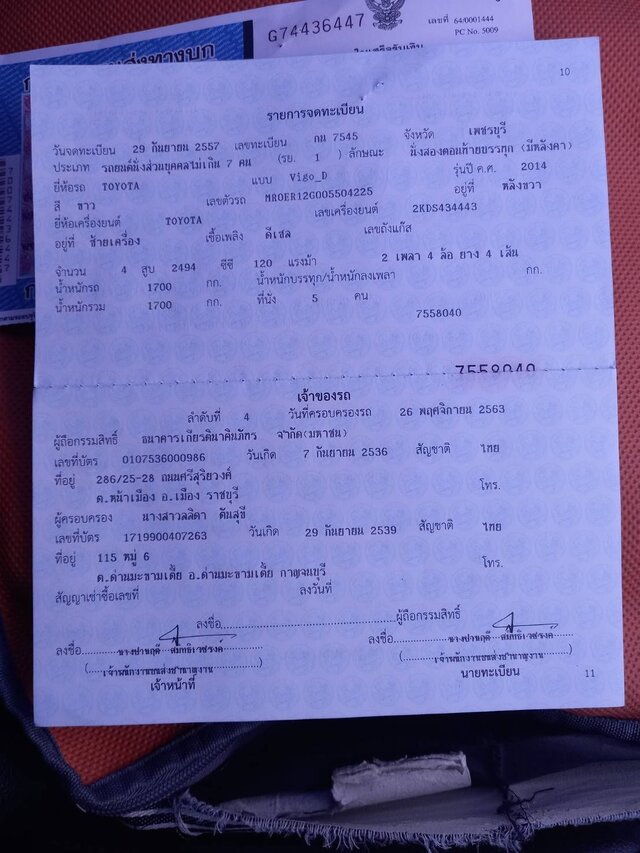 ส่งทางบก
G74436447
เลขที่ 64/0001444
PC No. 5009
ใบเสร็จรับเงิน
10
รายการจดทะเบียน
วันจดทะเบียน 29 กันยายน 2557 เลขทะเบียน กน 7545 จังหวัด เพชรบุรี
ประเภท รถยนต์นั่งส่วนบุคคลไม่เกิน 7 คน (รย. 1 ) ลักษณะ นั่งสองตอนท้ายบรรทุก (มีหลังคา)
ยี่ห้อรถ TOYOTA แบบ Vigo_D รุ่นปี ค.ศ. 2014
สี ขาว เลขตัวรถ MROER12G005504225 อยู่ที่ หลังขวา
ยี่ห้อเครื่องยนต์ TOYOTA เลขเครื่องยนต์ 2KDS434443
อยู่ที่ ซ้ายเครื่อง เชื้อเพลิง ดีเซล เลขถังแก๊ส
จำนวน 4 สูบ 2494 ซีซี 120 แรงม้า 2 เพลา 4 ล้อ ยาง 4 เส้น
น้ำหนักรถ 1700 กก. น้ำหนักบรรทุก/น้ำหนักลงเพลา กก.
น้ำหนักรวม 1700 กก. ที่นั่ง 5 คน
7558040
7558040
เจ้าของรถ
ลำดับที่ 4 วันที่ครอบครองรถ 26 พฤศจิกายน 2563
ผู้ถือกรรมสิทธิ์ ธนาคารเกียรตินาคินภัทร จำกัด(มหาชน)
เลขที่บัตร 0107536000986 วันเกิด 7 กันยายน 2536 สัญชาติ ไทย
ที่อยู่ 286/25-28 ถนนศรีสุริยวงศ์ โทร.
ต.หน้าเมือง อ.เมือง ราชบุรี
ผู้ครอบครอง นางสาวลลิดา ตันสุขี
เลขที่บัตร 1719900407263 วันเกิด 29 กันยายน 2539 สัญชาติ ไทย
ที่อยู่ 115 หมู่ 6 โทร.
ต.ด่านมะขามเตี้ย อ.ด่านมะขามเตี้ย กาญจนบุรี
สัญญาเช่าซื้อเลขที่ ลงวันที่
ลงชื่อ ผู้ถือกรรมสิทธิ์
ลงชื่อ ลงชื่อ
(เจ้าพนักงานขนส่งชำนาญงาน) (เจ้าพนักงานขนส่งชำนาญงาน)
เจ้าหน้าที่ นายทะเบียน
11